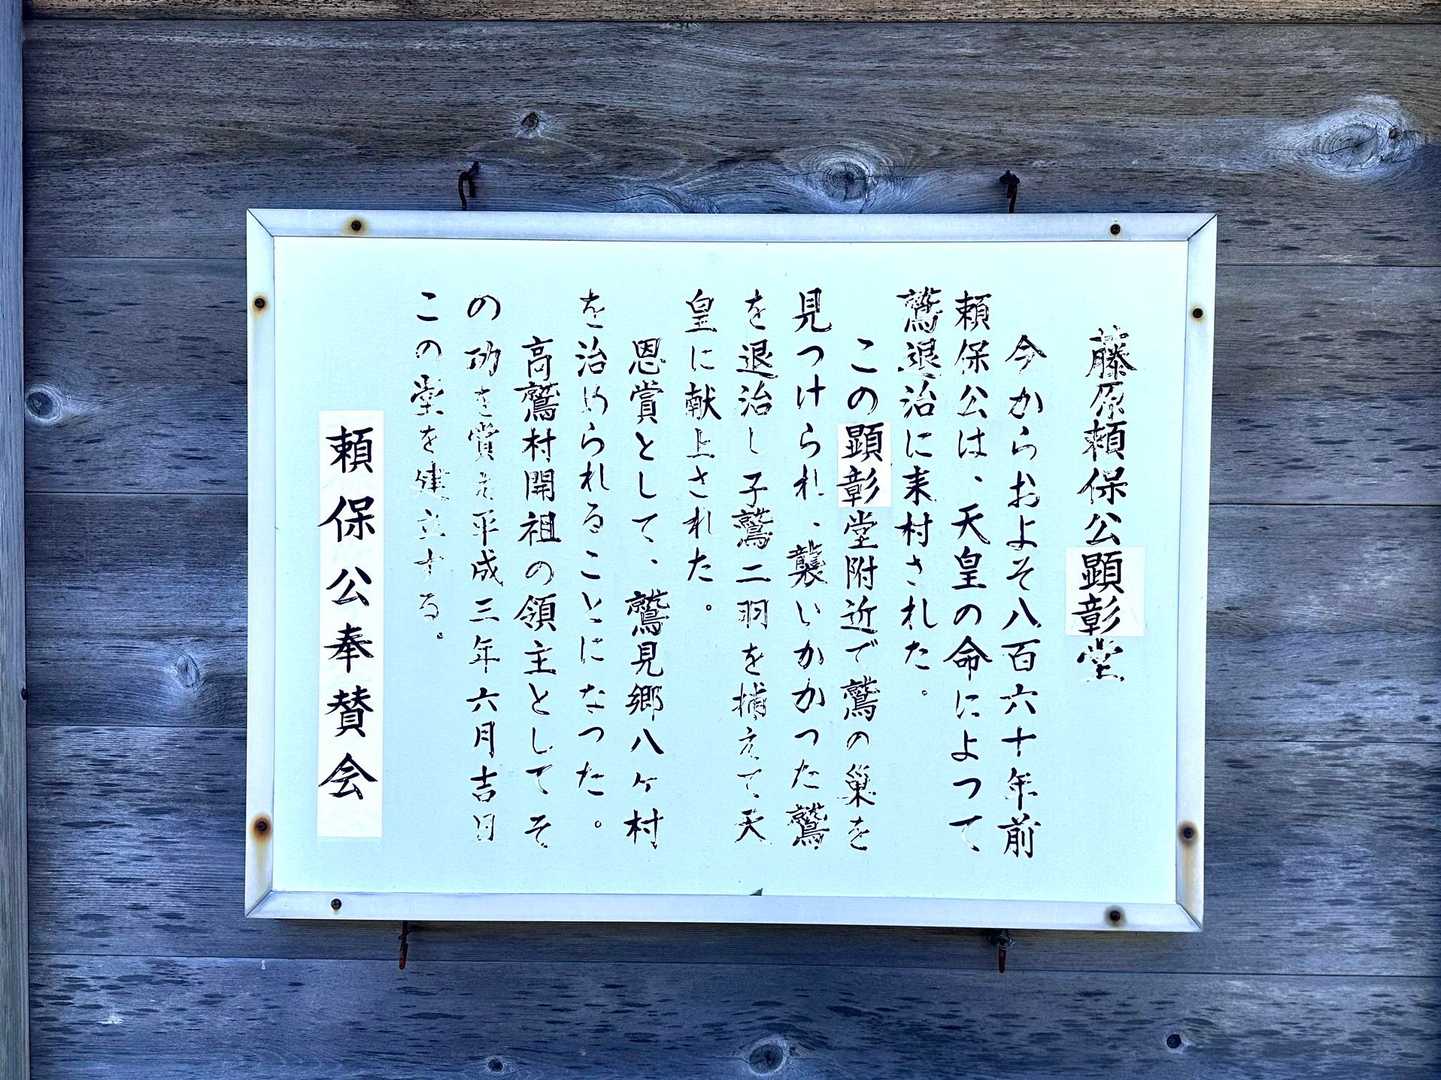 藤原頼保公顕彰堂
今からおよそ八百六十年前
頼保公は、天皇の命によつて
鷲退治に来村された。
この顕彰堂附近で鷲の巣を
見つけられ、襲いかかつた鷲
を退治し子鷲二羽を捕えて天
皇に献上された。
恩賞として、鷲見郷八ヶ村
を治められることになつた。
高鷲村開祖の領主としてそ
の功を賞え平成三年六月吉日
この堂を建立する。
頼保公奉賛会